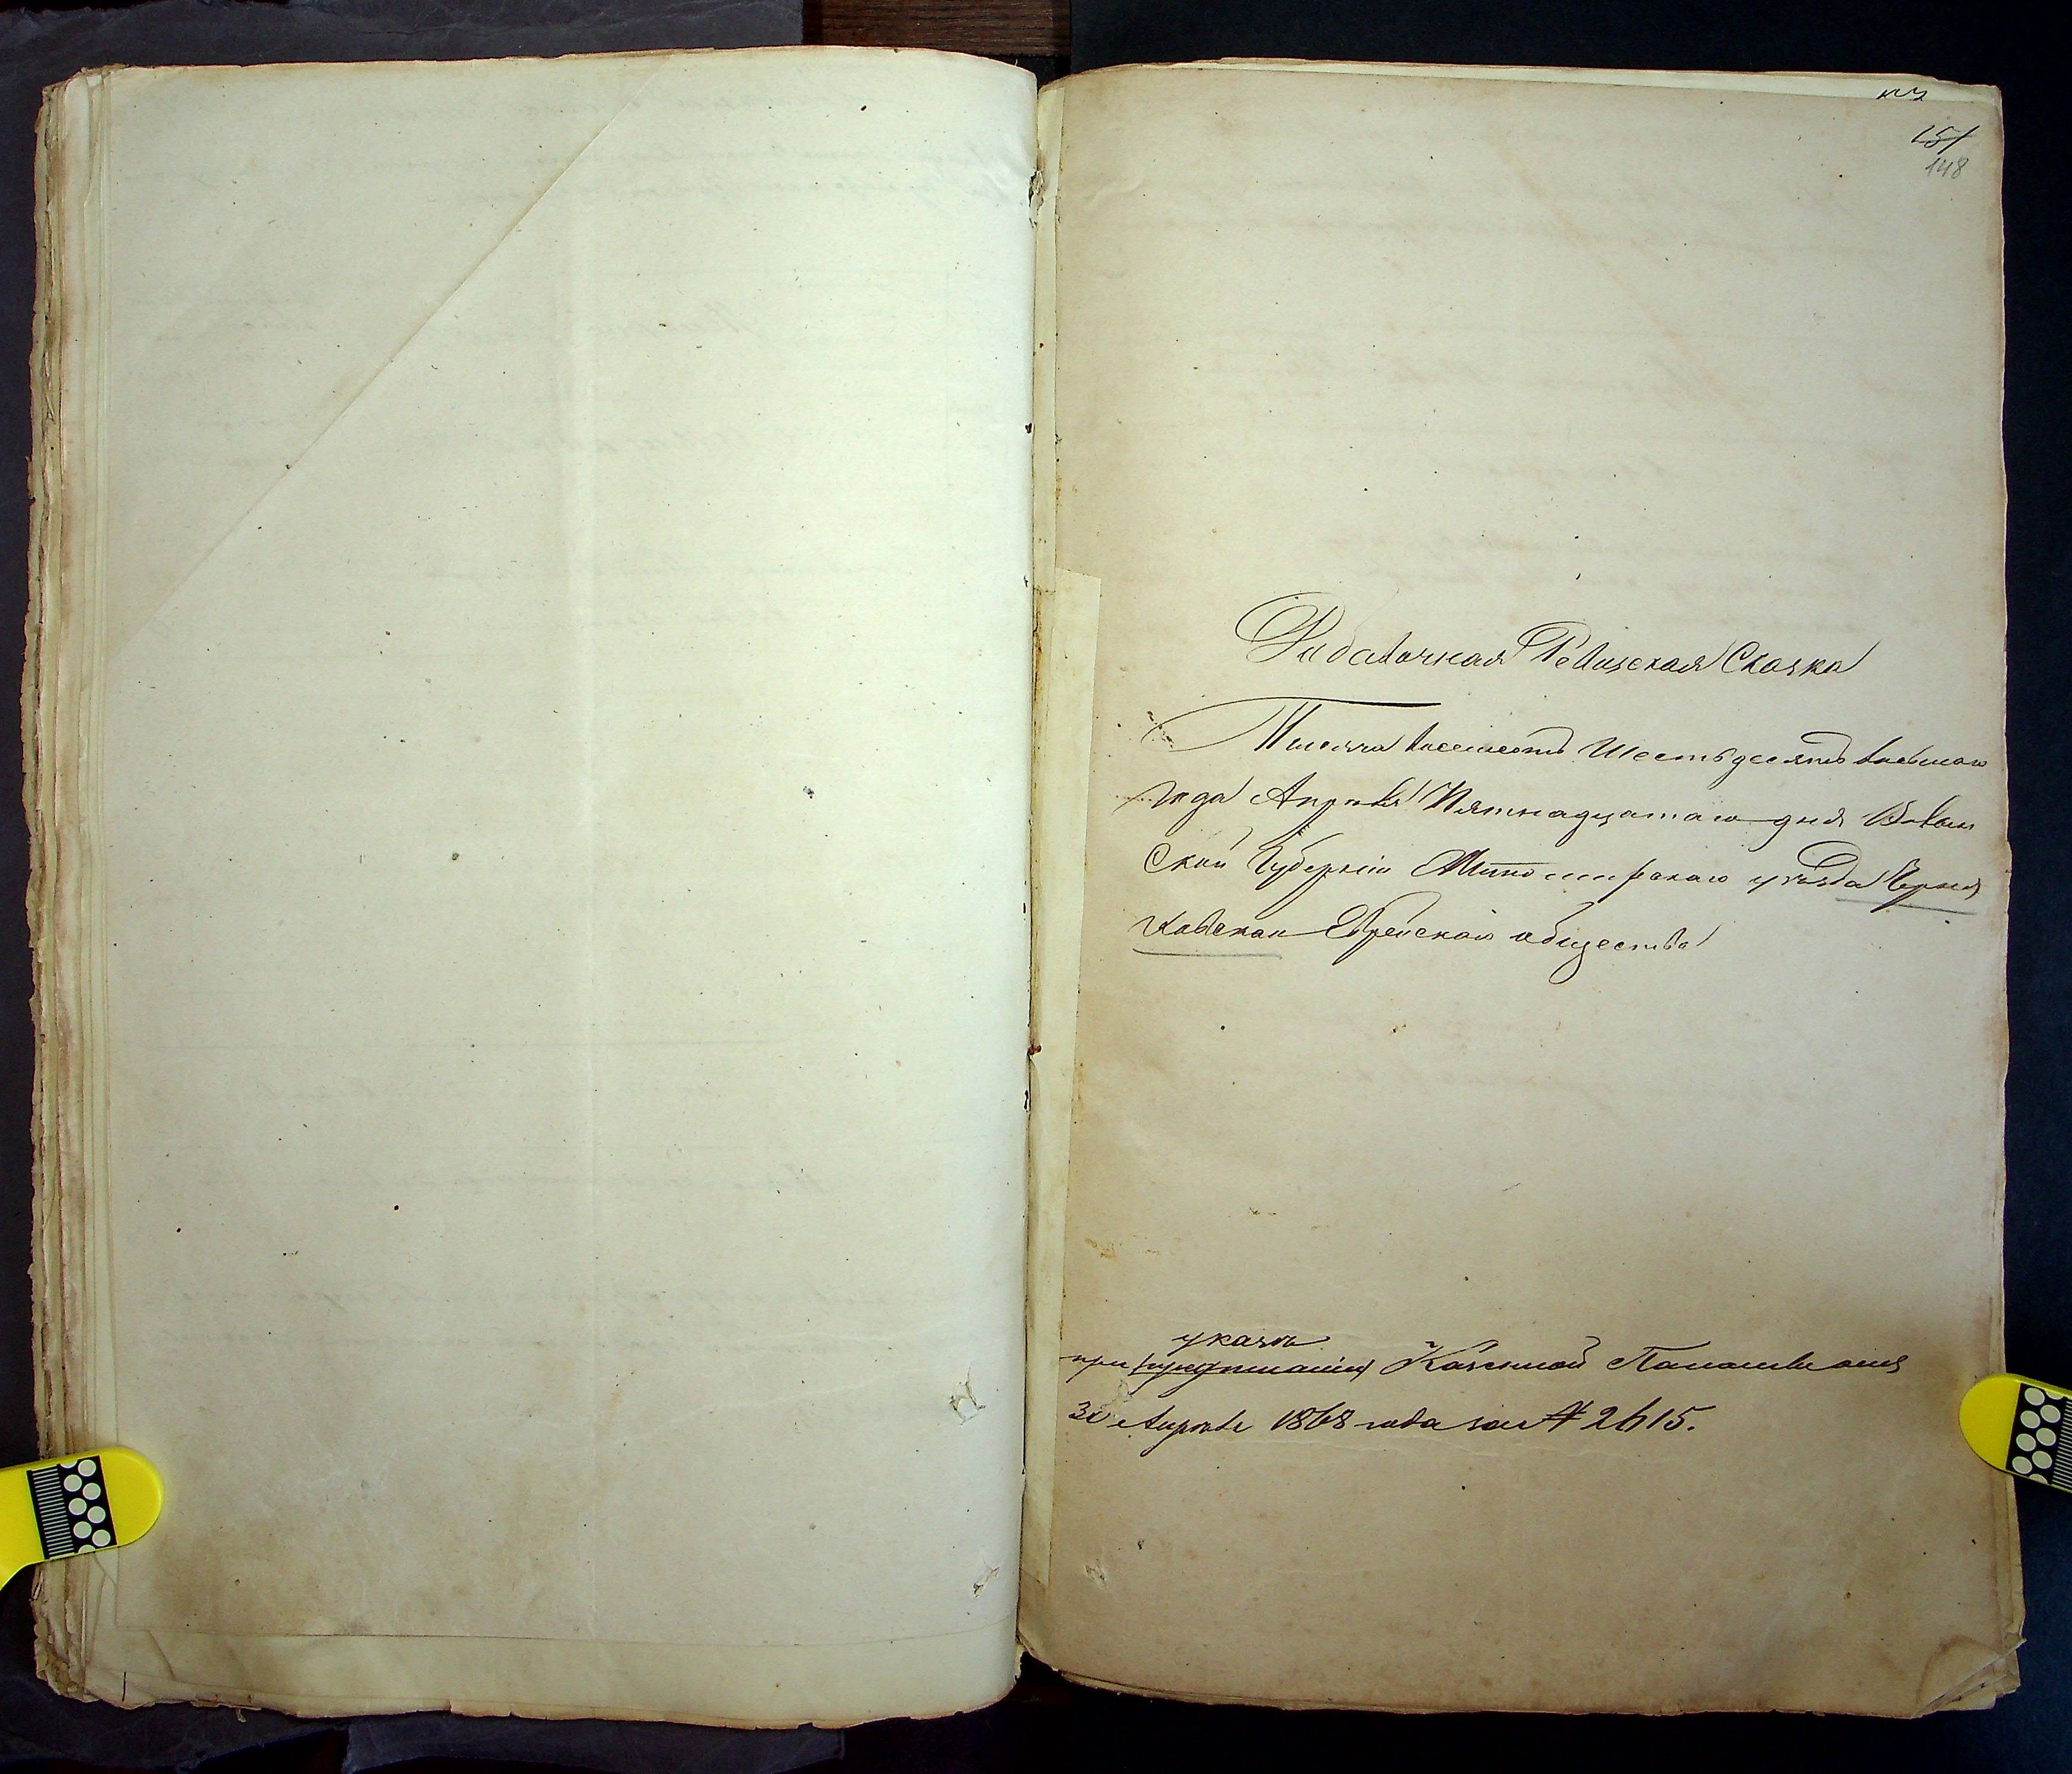 151
148
Добавочная Ревизская Сказка
Тысяча восемсотъ Шестьдесятъ восьмого
года Апрѣля Пятнадцатого дня Волын
ской Губерніи Житомирскаго уѣзда Черня
ховскаго Еврейскаго общества
указѣ
при Казенной Палаты отъ
30 Апрѣля 1868 года за № 2615.